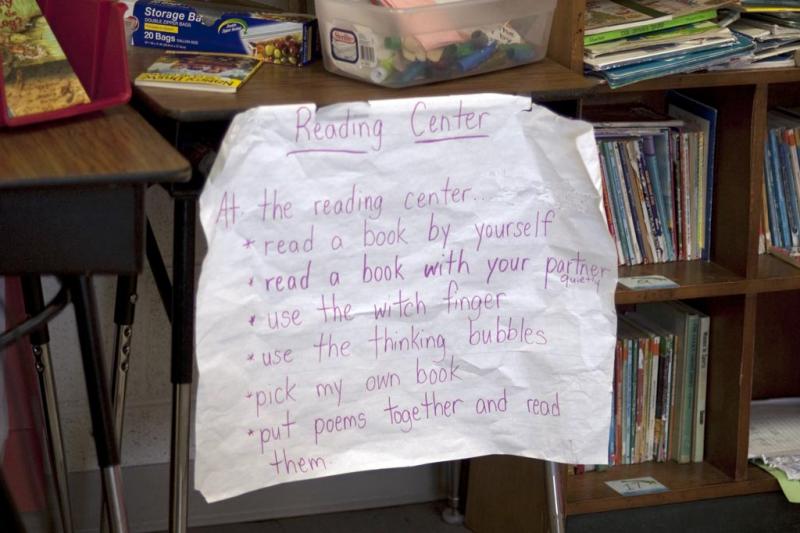 Storage Ba
DOUBLE ZIPPER BAGS
20 Bags
Reading Center
At the reading center...
* read a book by yourself
* read a book with your partner
quietly
* use the witch finger
* use the thinking bubbles
* pick my own book
* put poems together and read
them.